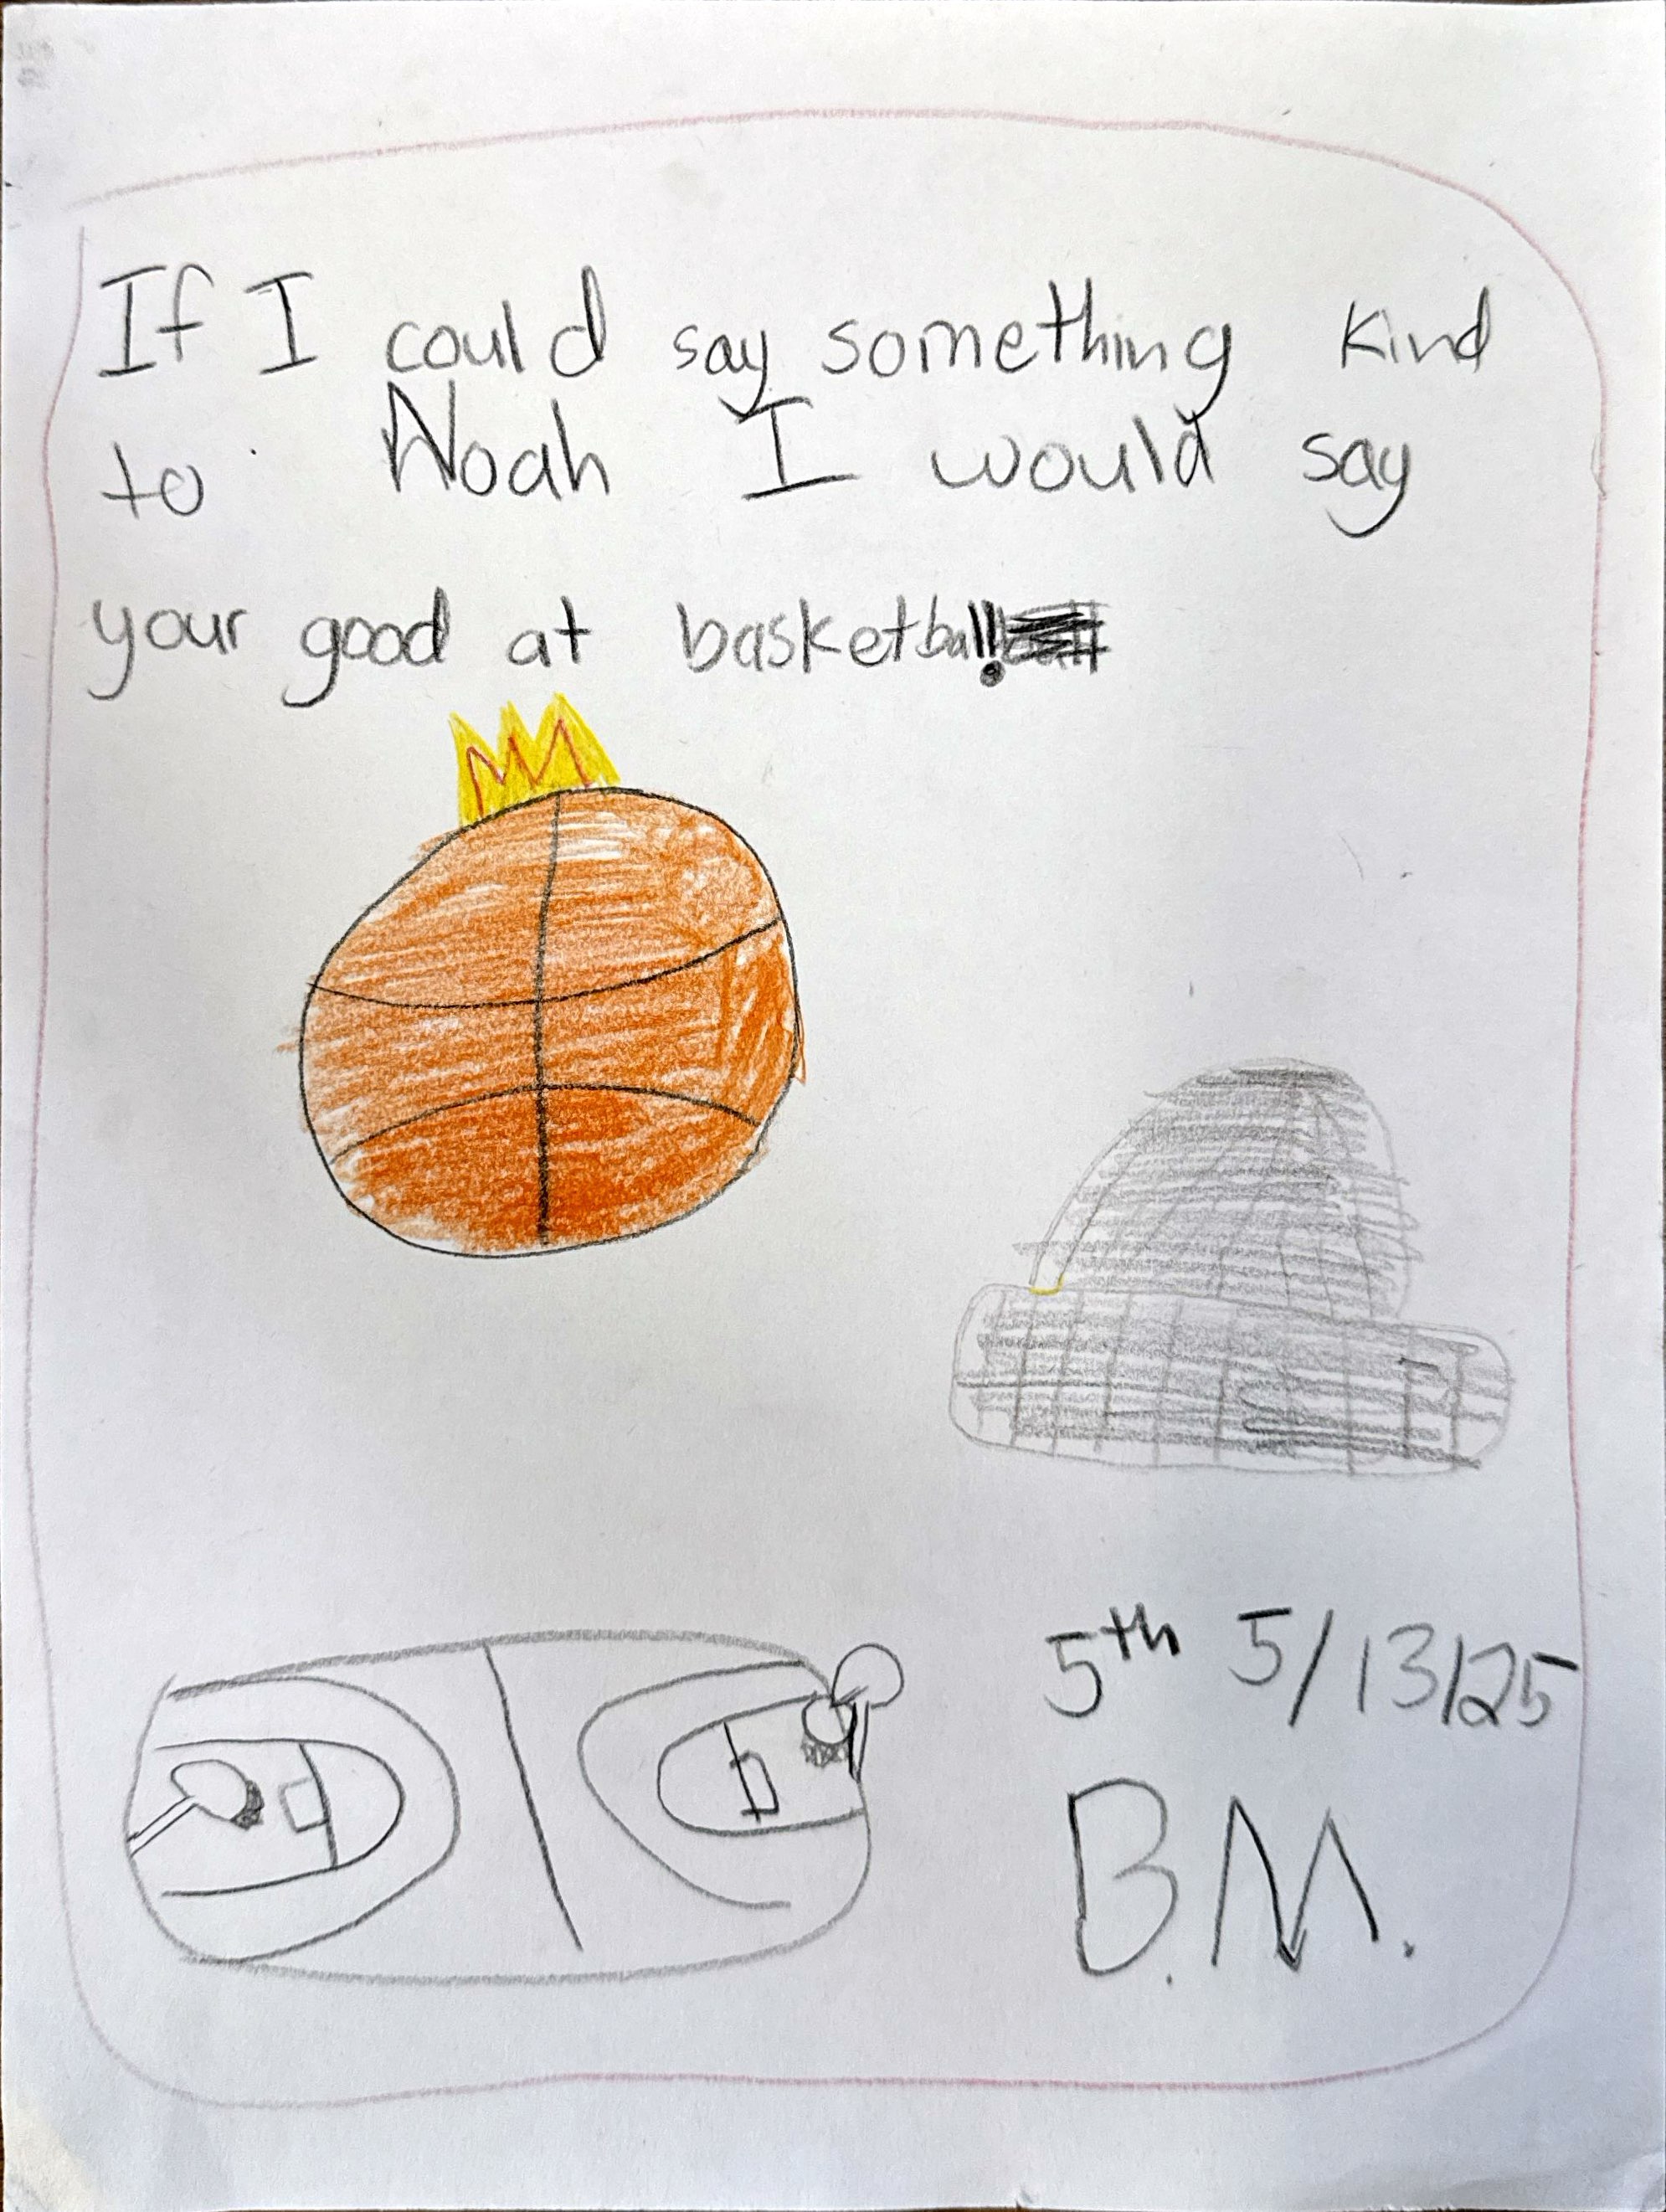 If I could say something kind
to Noah I would say
your good at basketball!
5th 5/13/25
B.M.